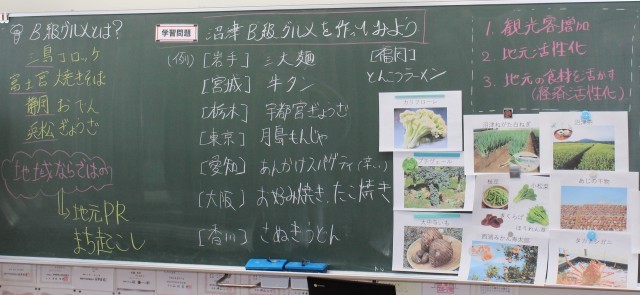 B級グルメとは?
三島コロッケ
富士宮焼きそば
静岡おでん
浜松ぎょうざ
地域ならではの
地元PR
まち起こし
学習問題
沼津B級グルメを作ってみよう
(例)
[岩手] 三大麺
[宮城] 牛タン
[栃木] 宇都宮ぎょうざ
[東京] 月島もんじゃ
[愛知] あんかけスパゲティ
[大阪] お好み焼き、たこ焼き
[香川] さぬきうどん
[福岡]
とんこつラーメン
1. 観光客増加
2. 地元活性化
3. 地元の食材を活かす
カリフラワー
プチヴェール
大中寺いも